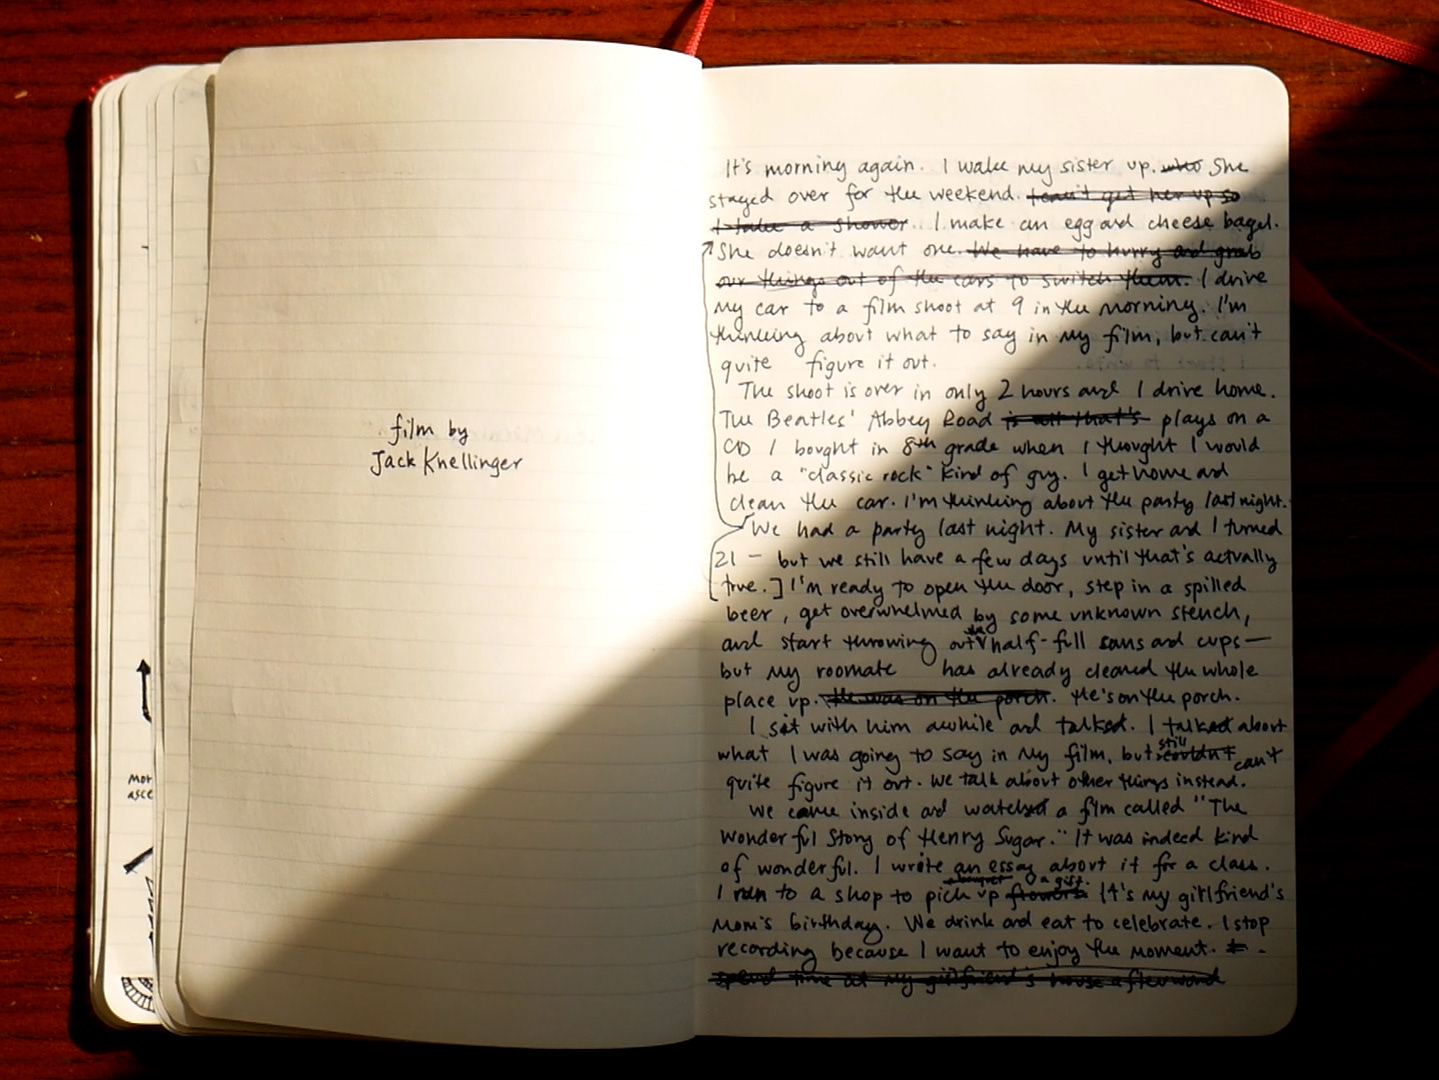 film by
Jack Knellinger
It's morning again. I wake my sister up. who She
stayed over for the weekend. I can't get her up so
I take a shower. I make an egg and cheese bagel.
She doesn't want one. We have to hurry and grab
our things out of the cars to switch them. I drive
my car to a film shoot at 9 in the morning. I'm
thinking about what to say in my film, but can't
quite figure it out.
The shoot is over in only 2 hours and I drive home.
The Beatles' Abbey Road is all that's plays on a
CD I bought in 8th grade when I thought I would
be a "classic rock" kind of guy. I get home and
clean the car. I'm thinking about the party last night.
We had a party last night. My sister and I turned
21 — but we still have a few days until that's actually
true.] I'm ready to open the door, step in a spilled
beer, get overwhelmed by some unknown stench,
and start throwing out the half-full cans and cups—
but my roomate has already cleaned the whole
place up. He was on the porch. He's on the porch.
I sit with him awhile and talked. I talked about
what I was going to say in my film, but still couldn't can't
quite figure it out. We talk about other things instead.
We came inside and watched a film called "The
Wonderful Story of Henry Sugar." It was indeed kind
of wonderful. I wrote an essay about it for a class.
I run to a shop to pick up a bouquet flowers a gift. It's my girlfriend's
Mom's birthday. We drink and eat to celebrate. I stop
recording because I want to enjoy the moment.
spend time at my girlfriend's house afterward
Mor
asce